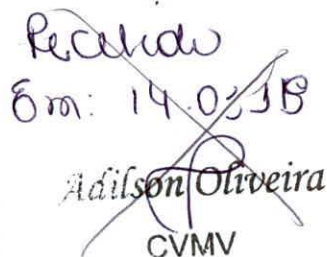 Recebido
Em: 14.03.18
Adilson Oliveira
CVMV